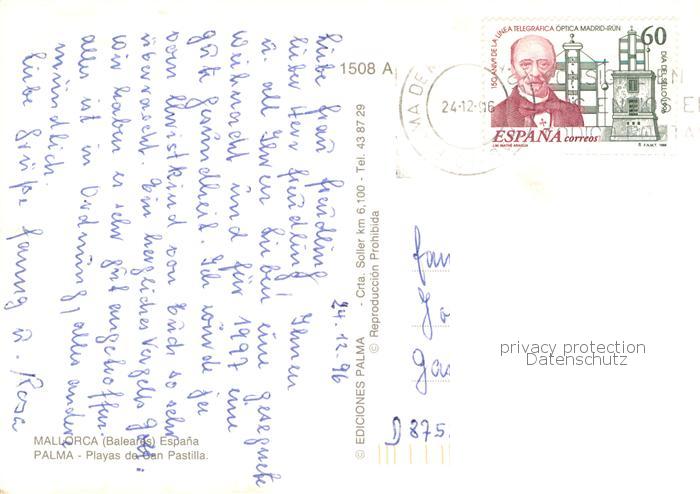 24.12.96
liebe Frau Freudling
lieber Herr Freudling! Ihnen
u. all Ihren lieben eine gesegnete
Weihnacht und für 1997 eine
gute gesundheit. Ich würde ja
vom Christkind von Euch so sehr
überrascht. Ein herzliches Vergelts gott.
wir haben es sehr gut angetroffen.
alles ist in Ordnung, alles andere
mündlich.
liebe Grüße u. Rosa
MALLORCA (Baleares) España
PALMA - Playas de San Pastilla.
1508 A
© EDICIONES PALMA - Crta. Soller km 6,100 - Tel. 43 87 29
© Reproducción Prohibida
150 ANIVº DE LA LINEA TELEGRAFICA OPTICA MADRID-IRÚN
60
DIA DEL SELLO
ESPAÑA correos
J.M. MATHÉ ARAGUA
F.N.M.T. 1996
MA DE
24-12-96
Fam
D 875
privacy protection
Datenschutz